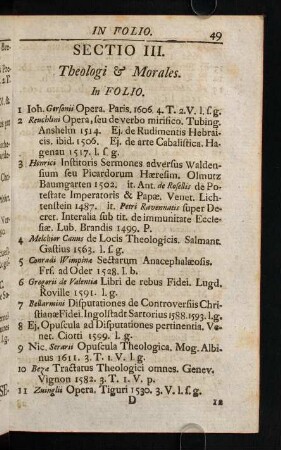 IN FOLIO. 49
SECTIO III.
Theologi & Morales.
In FOLIO.
1 Joh. Gersonii Opera. Paris. 1606. 4. T. 2.V. l. f. g.
2 Reuchlini Opera, seu de verbo mirifico. Tubing.
Anshelm 1514. Ej. de Rudimentis Hebrai-
cis. ibid. 1506. Ej. de arte Cabalistica. Ha-
genau 1517. l. f. g.
3 Henrici Institoris Sermones adversus Walden-
sium seu Picardorum Hæresim. Olmutz
Baumgarten 1502. it. Ant. de Rosellis de Po-
testate Imperatoris & Papæ. Venet. Lich-
tenstein 1487. it. Petri Ravennatis super De-
cret. Interalia sub tit. de immunitate Eccle-
siæ. Lub. Brandis 1499. P.
4 Melchior Canus de Locis Theologicis. Salmant.
Gastius 1563. l. f. g.
5 Conradi Wimpinæ Sectarum Anacephalæosis.
Frf. ad Oder 1528. l. b.
6 Gregorii de Valentia Libri de rebus Fidei. Lugd.
Roville 1591. l. g.
7 Bellarmini Disputationes de Controversiis Chri-
stianæ Fidei. Ingolstadt Sartorius 1588. 1593. l. g.
8 Ej. Opuscula ad Disputationes pertinentia. Ve-
net. Ciotti 1599. l. g.
9 Nic. Serarii Opuscula Theologica. Mog. Albi-
nus 1611. 3. T. 1. V. l. g.
10 Bezæ Tractatus Theologici omnes. Genev.
Vignon 1582. 3. T. 1. V. p.
11 Zuinglii Opera. Tiguri 1530. 3. V. l. f. g.
D 12